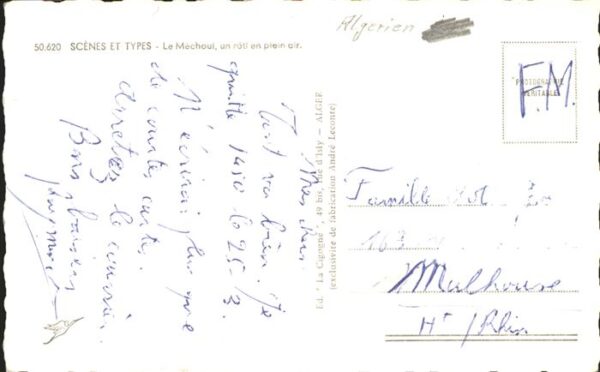 Algerien
50.620 SCÈNES ET TYPES - Le Méchoui, un rôti en plein air.
PHOTOGRAPHIE
VÉRITABLE
F.M.
Mes chers
Tout va bien. Je
quitte le 25-3.
N'écrivez plus que
de courtes cartes.
Arrêtez le courrier.
Bons baisers
Raymond
Ed. "La Cigogne" - 49 bis, rue d'Isly - ALGER
(exclusivité de fabrication André Leconte)
Famille
163
Mulhouse
Ht/Rhin